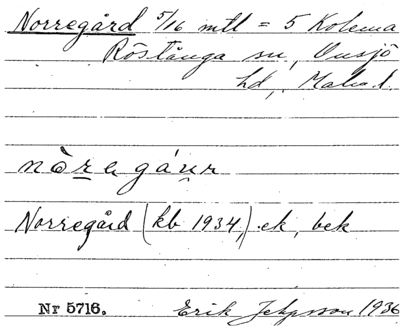 Norregård 5/16 mtl = 5 Kolema
Röstånga sn, Onsjö
hd, Malm. l.
nò̀re gáur
Norregård (kb 1934,) ek, bek
Nr 5716. Erik Jepsson 1936